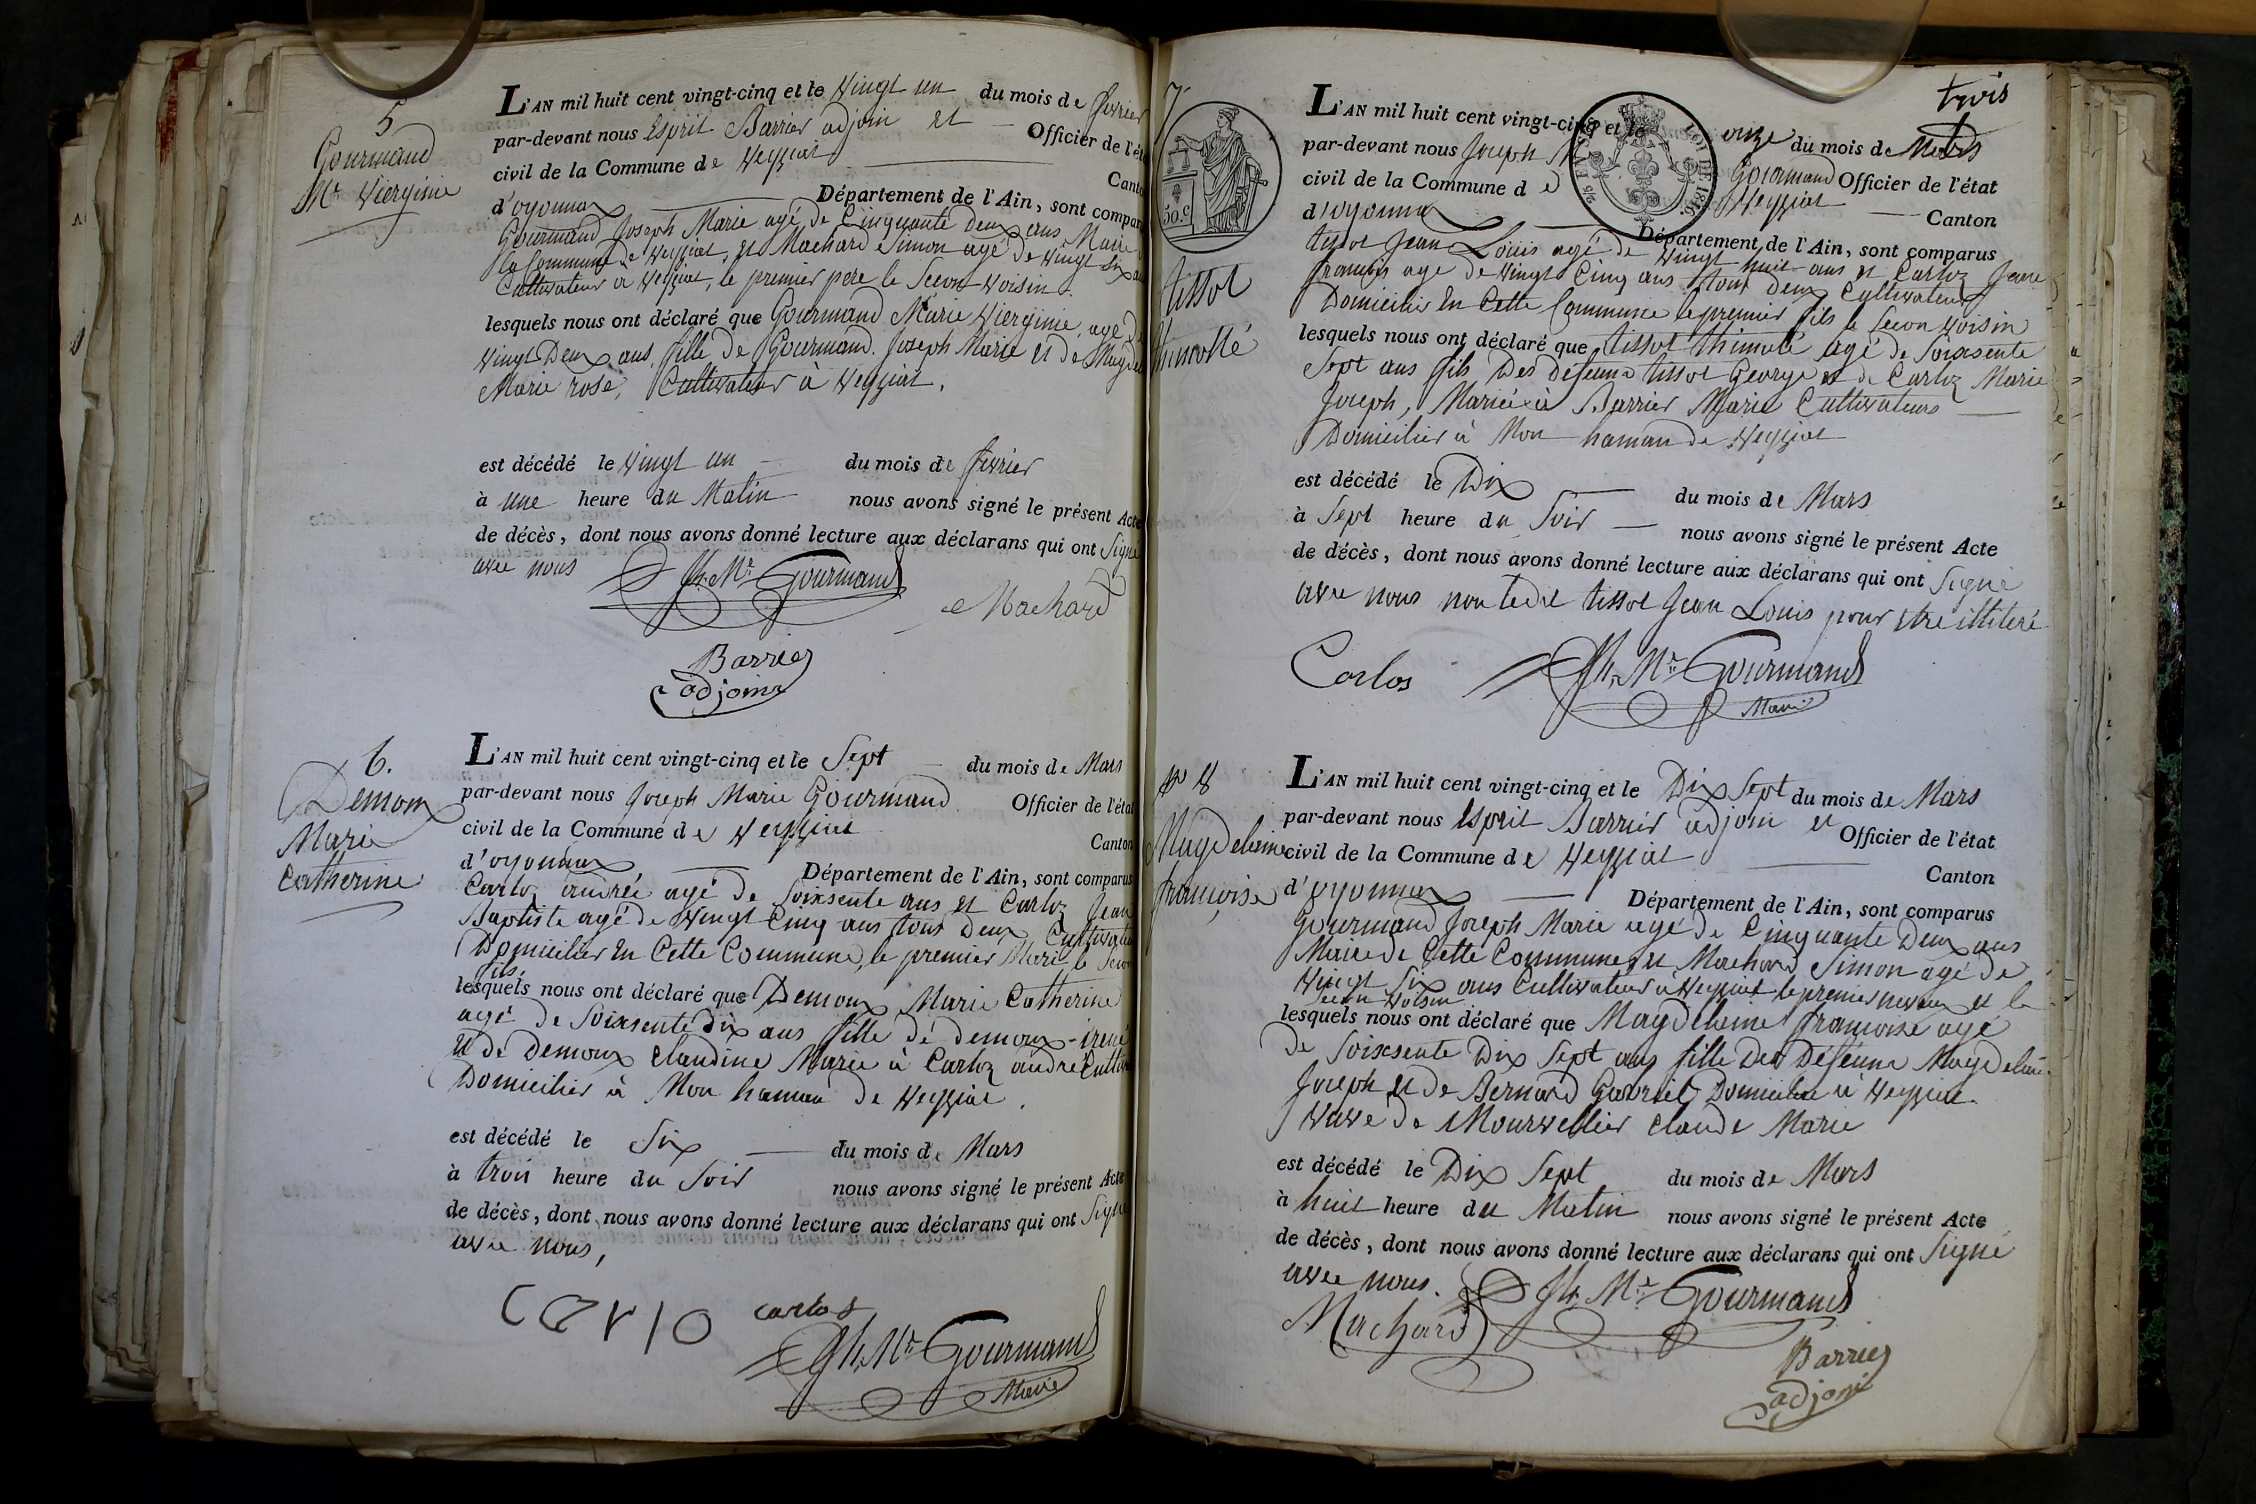 5
Gourmand
Mie Vierginie
L'AN mil huit cent vingt-cinq et le Vingt un du mois de fevrier
par-devant nous Esprit Barrier adjoin et Officier de l'état
civil de la Commune de Veyziat Canton
d'oyonnax Département de l'Ain, sont comparus
Gourmand Joseph Marie agé de Cinquante Deux ans Maire
la Commune de Veyziat, et Machard Simon agé de Vingt Six ans
Cultivateur à Veyziat, le premier pere le Secon Voisin.
lesquels nous ont déclaré que Gourmand Marie Vierginie, agé de
Vingt Deux ans fille de Gourmand Joseph Marie et de
Marie rose, Cultivateur à Veyziat.
est décédé le Vingt un du mois de fevrier
à une heure du Matin nous avons signé le présent Acte
de décès, dont nous avons donné lecture aux déclarans qui ont Signé
avec nous Jh. Mie Gourmand
Machard
Barrier
adjoint
6.
Demoux
Marie
Catherine
L'AN mil huit cent vingt-cinq et le Sept du mois de Mars
par-devant nous Joseph Marie Gourmand Officier de l'état
civil de la Commune de Veyziat Canton
d'oyonnax Département de l'Ain, sont comparus
Carloz andrée agé de Soixsente ans et Carloz Jean
Baptiste agé de Vingt Cinq ans tout Deux Cultivateur
Domicilier En Cette Commune, le premier Mari le Secon
fils,
lesquels nous ont déclaré que Demoux Marie Catherine
agé de Soixsente Dix ans fille dé demoux irené
et de Demoux Claudine Marie à Carloz andré
Domicilier à Mon hamau de Veyziat.
est décédé le Six du mois de Mars
à trois heure du Soir nous avons signé le présent Acte
de décès, dont nous avons donné lecture aux déclarans qui ont Signé
avec nous,
carlo carlos
Jh. Mie Gourmand
Maire
trois
7
50.C
LOI DE 1816.
tissot
thimotté
L'AN mil huit cent vingt-cinq et le onze du mois de Mars
par-devant nous Joseph Gourmand Officier de l'état
civil de la Commune de Veyziat Canton
d'oyonnax Département de l'Ain, sont comparus
tissot Jean Louis agé de Vingt huit ans et Carloz Jean
francois age de Vingt Cinq ans tout deux Cultivateur
Domicilier En Cette Commune le premier fils le Secon Voisin
lesquels nous ont déclaré que tissot thimoté agé de Soixsente
Sept ans fils Des Defeunt tissot George et de Carloz Marie
Joseph, Marié à Barrier Marie Cultivateurs
Domicilier à Mon haman de Veyziat
est décédé le Dix du mois de Mars
à Sept heure du Soir nous avons signé le présent Acte
de décès, dont nous avons donné lecture aux déclarans qui ont Signé
avec nous non ledit tissot Jean Louis pour Etre illiteré
Carlos Jh. Mie Gourmand
Maire
no 8
Magdeleine
francoise
L'AN mil huit cent vingt-cinq et le Dix Sept du mois de Mars
par-devant nous Esprit Barrier adjoin et Officier de l'état
civil de la Commune de Veyziat Canton
d'oyonnax Département de l'Ain, sont comparus
Gourmand Joseph Marie agé de Cinquante Deux ans
Maire de Cette Commune, et Machard Simon agé de
Vingt Six ans Cultivateur à Veyziat le premier neveu et le
Secon Voisin
lesquels nous ont déclaré que Magdeleine francoise agé
de Soixsente Dix Sept ans fille Des Deféunt Magdeleine
Joseph et de Bernard Gabriel Domicilier à Veyziat.
Vuve de Mourvellier Claude Marie
est décédé le Dix Sept du mois de Mars
à huit heure du Matin nous avons signé le présent Acte
de décès, dont nous avons donné lecture aux déclarans qui ont Signé
avec nous. Jh. Mie Gourmand
Machard
Barrier
adjoint